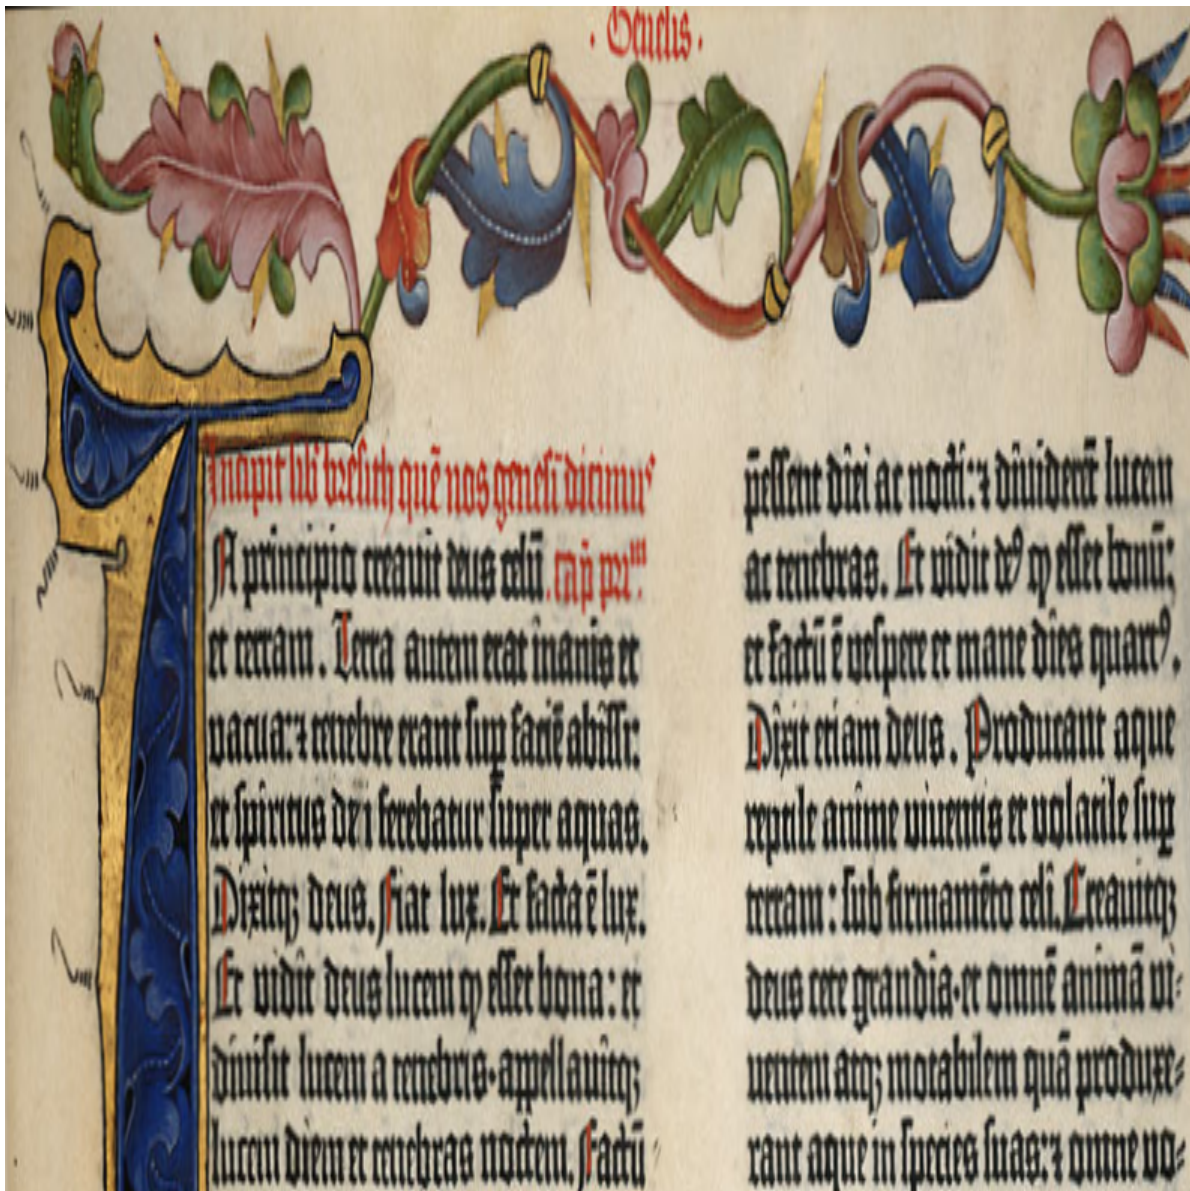 · Genesis ·
Incipit lib̄ bresith quē nos genesī dicimus
In principio creavit deus celū . Cap̄ prīm̄ .
et terram . Terra autem erat inanis et
vacua: ⁊ tenebre erant sup faciē abissi:
et spiritus dei ferebatur super aquas.
Dixitqꝫ deus. Fiat lux. Et facta ē lux.
Et vidit deus lucem ꝙ esset bona: et
divisit lucem a tenebris · appellavitqꝫ
lucem diem et tenebras noctem. Factū
p̄essent diei ac nocti: ⁊ dividerēt lucem
ac tenebras. Et vidit deꝰ ꝙ esset bonū:
et factū ē vespere et mane dies quartꝰ.
Dixit etiam deus . Producant aque
reptile anime viventis et volatile suꝑ
terram: sub firmamēto celi. Creavitqꝫ
deus cete grandia · et omnē animā vi-
ventem atqꝫ motabilem quā produxe-
rant aque in species suas: ⁊ omne vo-